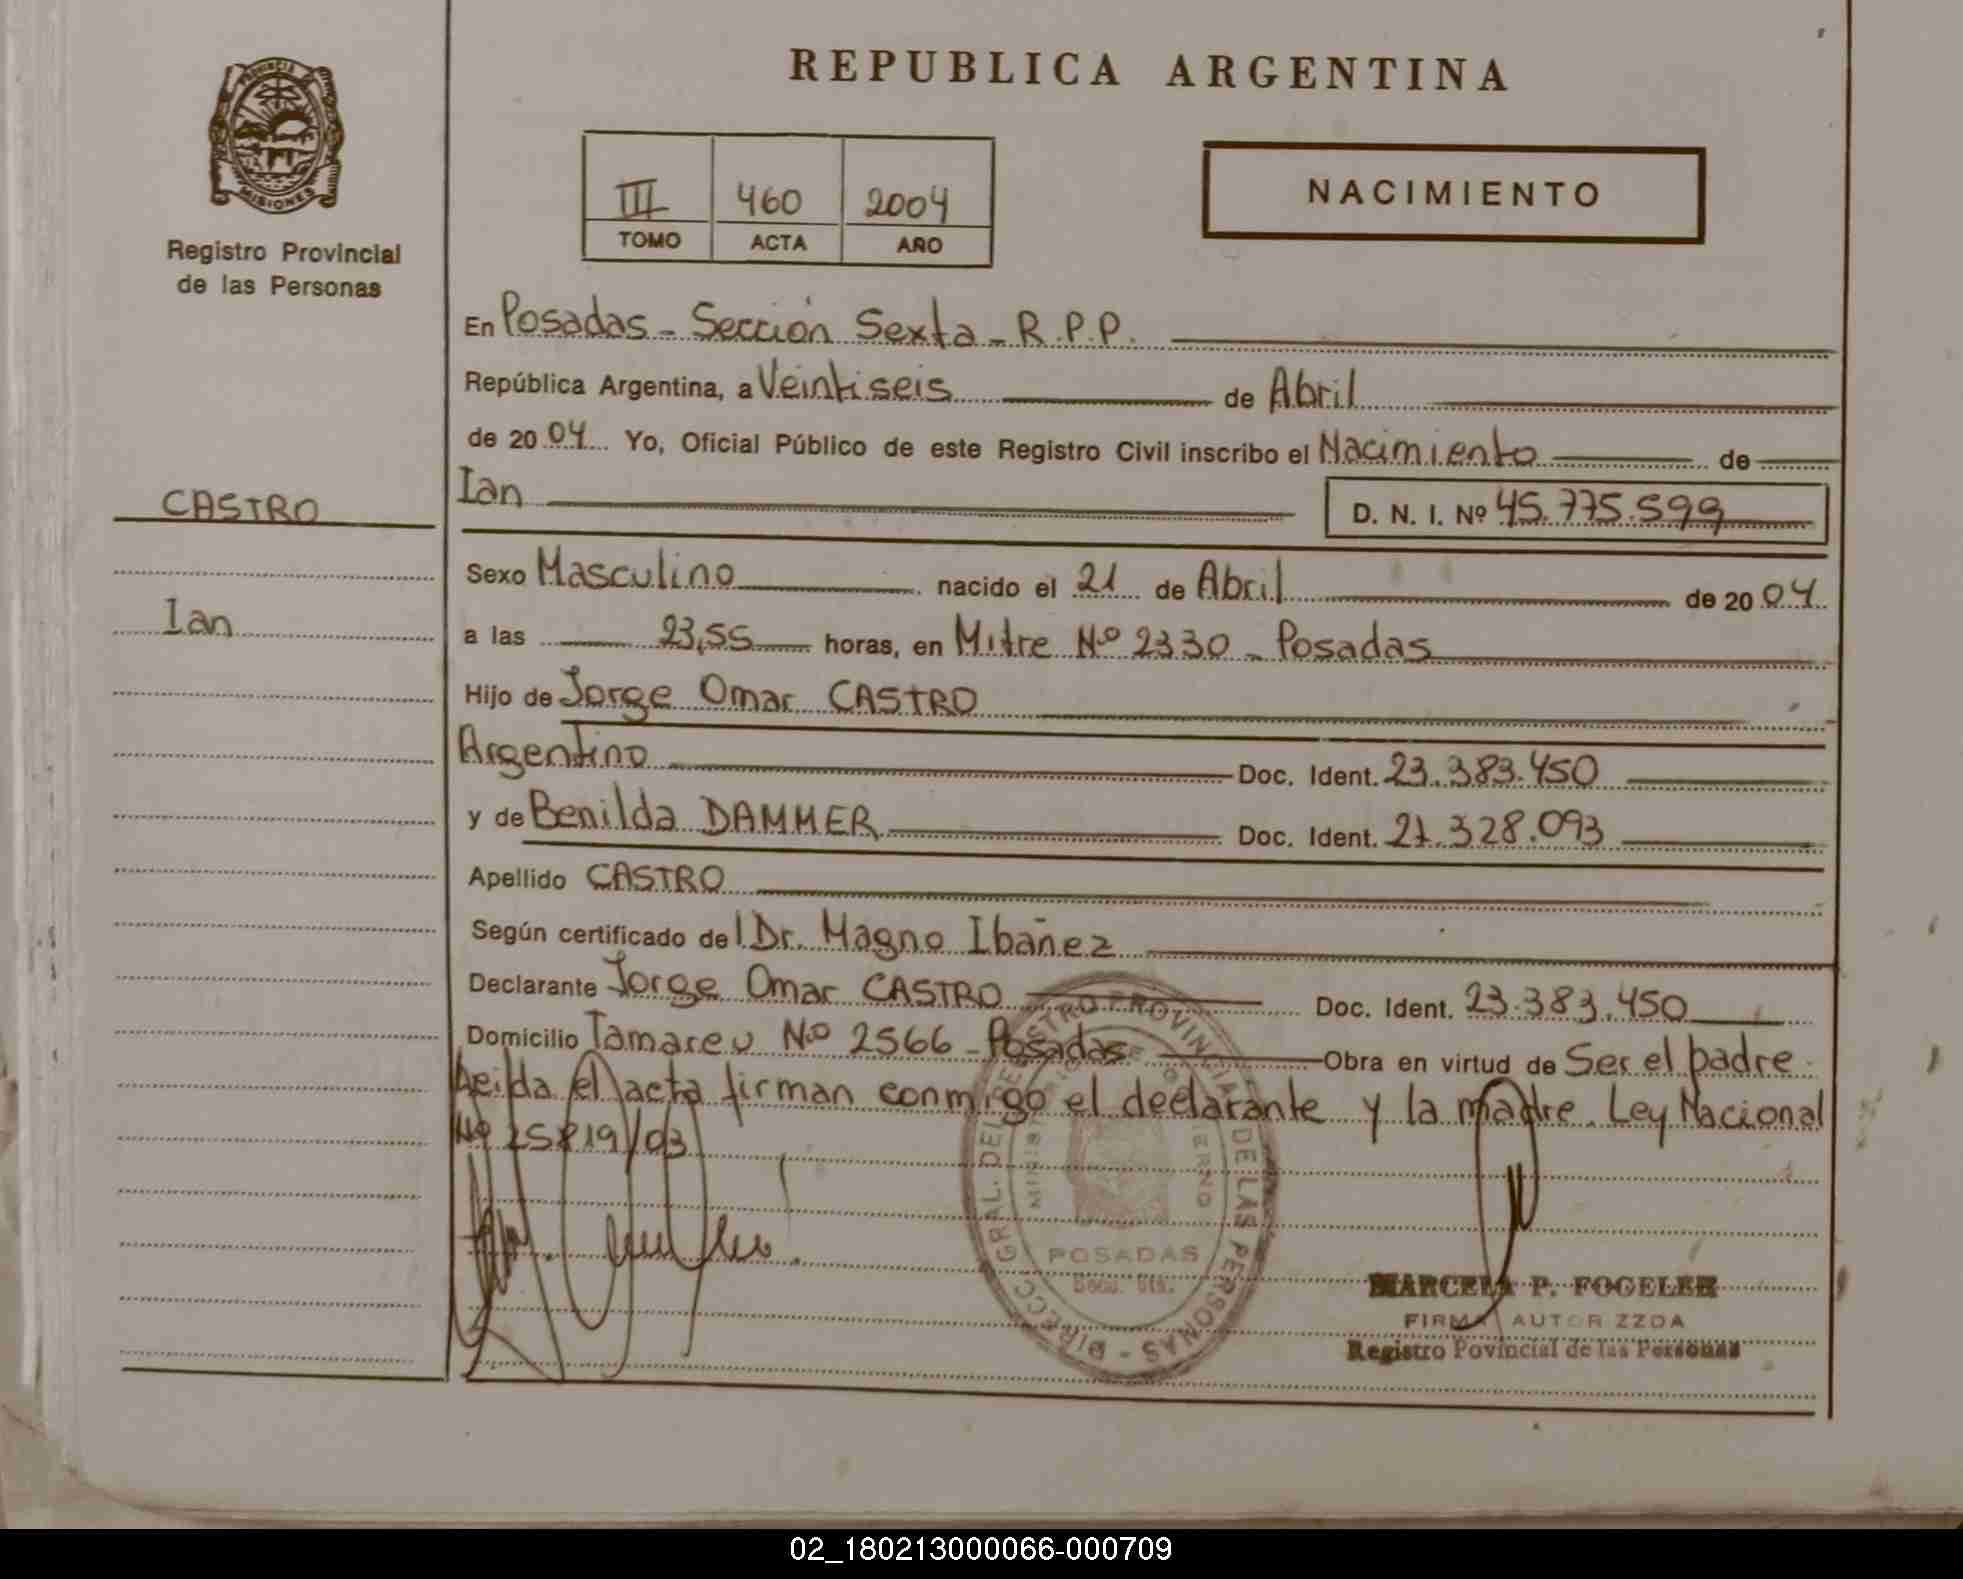 REPUBLICA ARGENTINA
PROVINCIA DE MISIONES
Registro Provincial
de las Personas
III 460 2004
TOMO ACTA AÑO
NACIMIENTO
En Posadas - Sección Sexta - R.P.P.
República Argentina, a Veintiseis de Abril
de 2004 Yo, Oficial Público de este Registro Civil inscribo el Nacimiento de
CASTRO
Ian
Ian D. N. I. Nº 45.775.599
Sexo Masculino nacido el 21 de Abril de 2004
a las 23,55 horas, en Mitre Nº 2330 - Posadas
Hijo de Jorge Omar CASTRO
Argentino Doc. Ident. 23.383.450
y de Benilda DAMMER Doc. Ident. 21.328.093
Apellido CASTRO
Según certificado del Dr. Magno Ibañez
Declarante Jorge Omar CASTRO Doc. Ident. 23.383.450
Domicilio Tamareu Nº 2566 - Posadas Obra en virtud de Ser el padre.
Leida el acta firman conmigo el declarante y la madre. Ley Nacional
Nº 25819/03
DIRECC. GRAL. DEL REGISTRO PROVINCIAL DE LAS PERSONAS -
POSADAS
MARCELA P. FOGELER
FIRMA AUTORIZZDA
Registro Povincial de las Personas
02_180213000066-000709